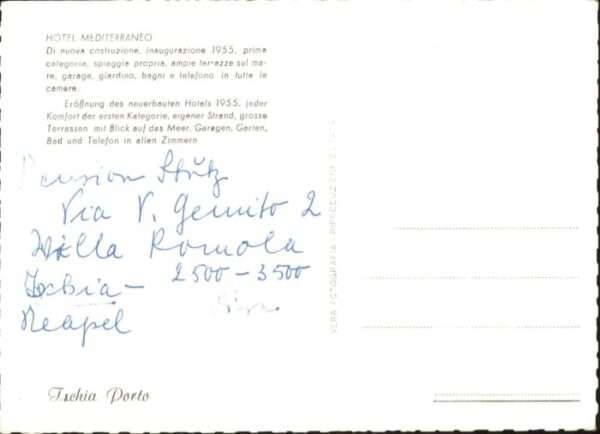 HOTEL MEDITERRANEO
Di nuova costruzione, inaugurazione 1955, prima
categoria, spiaggia propria, ampie terrazze sul ma-
re, garage, giardino, bagni e telefono in tutte le
camere.
Eröffnung des neuerbauten Hotels 1955, jeder
Komfort der ersten Kategorie, eigener Strand, grosse
Terrassen mit Blick auf das Meer, Garagen, Garten,
Bad und Telefon in allen Zimmern
Pension Stütz
Via V. Gemito 2
Villa Romola
Ischia - 2500 - 3500
Neapel
VERA FOTOGRAFIA
Ischia Porto